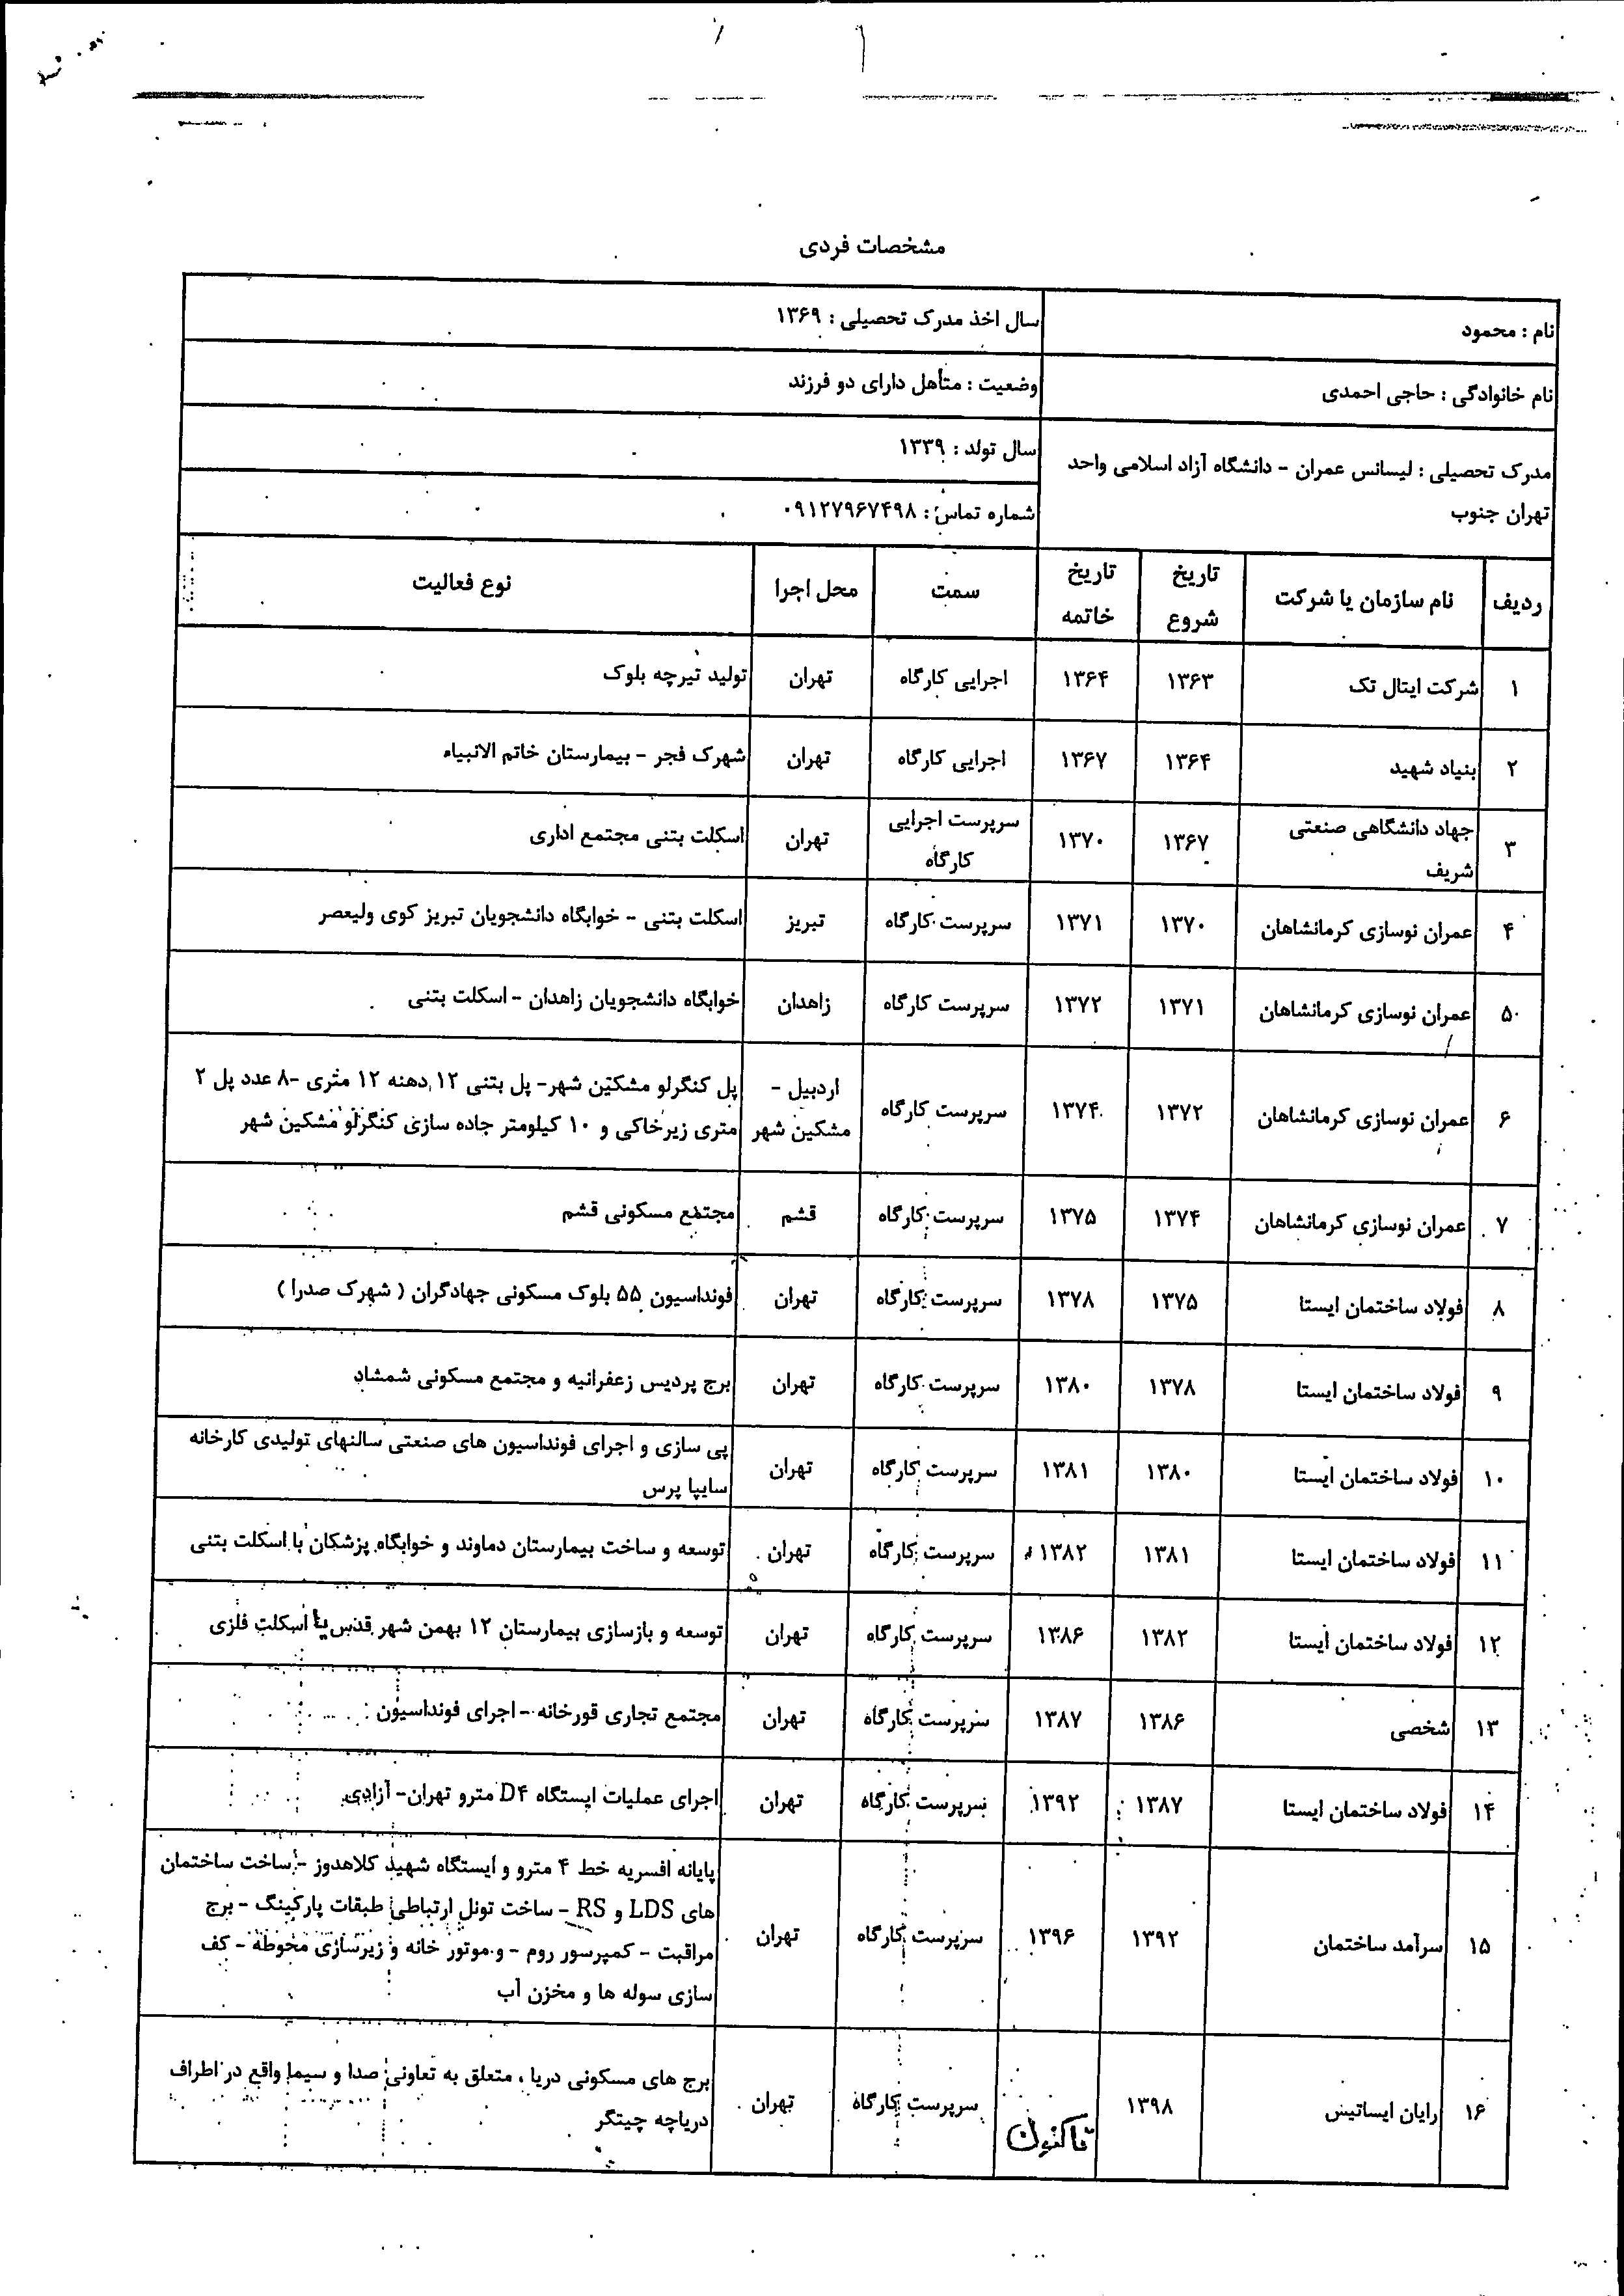 مشخصات فردی
نام : محمود
سال اخذ مدرک تحصیلی : ۱۳۶۹
نام خانوادگی : حاجی احمدی
وضعیت : متأهل دارای دو فرزند
مدرک تحصیلی : لیسانس عمران - دانشگاه آزاد اسلامی واحد
تهران جنوب
سال تولد : ۱۳۳۹
شماره تماس : ۰۹۱۲۷۹۶۷۴۹۸
ردیف نام سازمان یا شرکت تاریخ شروع تاریخ خاتمه سمت محل اجرا نوع فعالیت
۱ شرکت ایتال تک ۱۳۶۳ ۱۳۶۴ اجرایی کارگاه تهران تولید تیرچه بلوک
۲ بنیاد شهید ۱۳۶۴ ۱۳۶۷ اجرایی کارگاه تهران شهرک فجر - بیمارستان خاتم الانبیاء
۳ جهاد دانشگاهی صنعتی شریف ۱۳۶۷ ۱۳۷۰ سرپرست اجرایی کارگاه تهران اسکلت بتنی مجتمع اداری
۴ عمران نوسازی کرمانشاهان ۱۳۷۰ ۱۳۷۱ سرپرست کارگاه تبریز اسکلت بتنی - خوابگاه دانشجویان تبریز کوی ولیعصر
۵ عمران نوسازی کرمانشاهان ۱۳۷۱ ۱۳۷۲ سرپرست کارگاه زاهدان خوابگاه دانشجویان زاهدان - اسکلت بتنی
۶ عمران نوسازی کرمانشاهان ۱۳۷۲ ۱۳۷۴ سرپرست کارگاه اردبیل - مشکین شهر پل کنگرلو مشکین شهر- پل بتنی ۱۲ دهنه ۱۲ متری -۸ عدد پل ۲
متری زیرخاکی و ۱۰ کیلومتر جاده سازی کنگرلو مشکین شهر
۷ عمران نوسازی کرمانشاهان ۱۳۷۴ ۱۳۷۵ سرپرست کارگاه قشم مجتمع مسکونی قشم
۸ فولاد ساختمان ایستا ۱۳۷۵ ۱۳۷۸ سرپرست کارگاه تهران فونداسیون ۵۵ بلوک مسکونی جهادگران ( شهرک صدرا )
۹ فولاد ساختمان ایستا ۱۳۷۸ ۱۳۸۰ سرپرست کارگاه تهران برج پردیس زعفرانیه و مجتمع مسکونی شمشاد
۱۰ فولاد ساختمان ایستا ۱۳۸۰ ۱۳۸۱ سرپرست کارگاه تهران پی سازی و اجرای فونداسیون های صنعتی سالنهای تولیدی کارخانه
سایپا پرس
۱۱ فولاد ساختمان ایستا ۱۳۸۱ ۱۳۸۲ سرپرست کارگاه تهران توسعه و ساخت بیمارستان دماوند و خوابگاه پزشکان با اسکلت بتنی
۱۲ فولاد ساختمان ایستا ۱۳۸۲ ۱۳۸۶ سرپرست کارگاه تهران توسعه و بازسازی بیمارستان ۱۲ بهمن شهر قدس با اسکلت فلزی
۱۳ شخصی ۱۳۸۶ ۱۳۸۷ سرپرست کارگاه تهران مجتمع تجاری قورخانه - اجرای فونداسیون
۱۴ فولاد ساختمان ایستا ۱۳۸۷ ۱۳۹۲ سرپرست کارگاه تهران اجرای عملیات ایستگاه D۴ مترو تهران- آزادی
۱۵ سرآمد ساختمان ۱۳۹۲ ۱۳۹۶ سرپرست کارگاه تهران پایانه افسریه خط ۴ مترو و ایستگاه شهید کلاهدوز - ساخت ساختمان
های LDS و RS - ساخت تونل ارتباطی طبقات پارکینگ - برج
مراقبت - کمپرسور روم - و موتور خانه و زیرسازی محوطه - کف
سازی سوله ها و مخزن آب
۱۶ رایان ایساتیس ۱۳۹۸ تاکنون سرپرست کارگاه تهران برج های مسکونی دریا ، متعلق به تعاونی صدا و سیما واقع در اطراف
دریاچه چیتگر